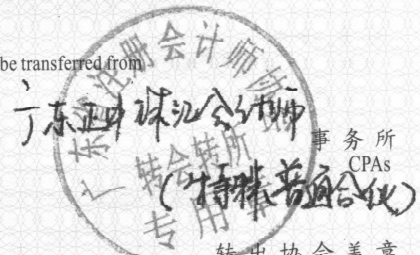 be transferred from
广东正中珠江会计师
事务所
CPAs
(特殊普通合伙)
广东省注册会计师协会
转会转所
专用章
转出协会盖章